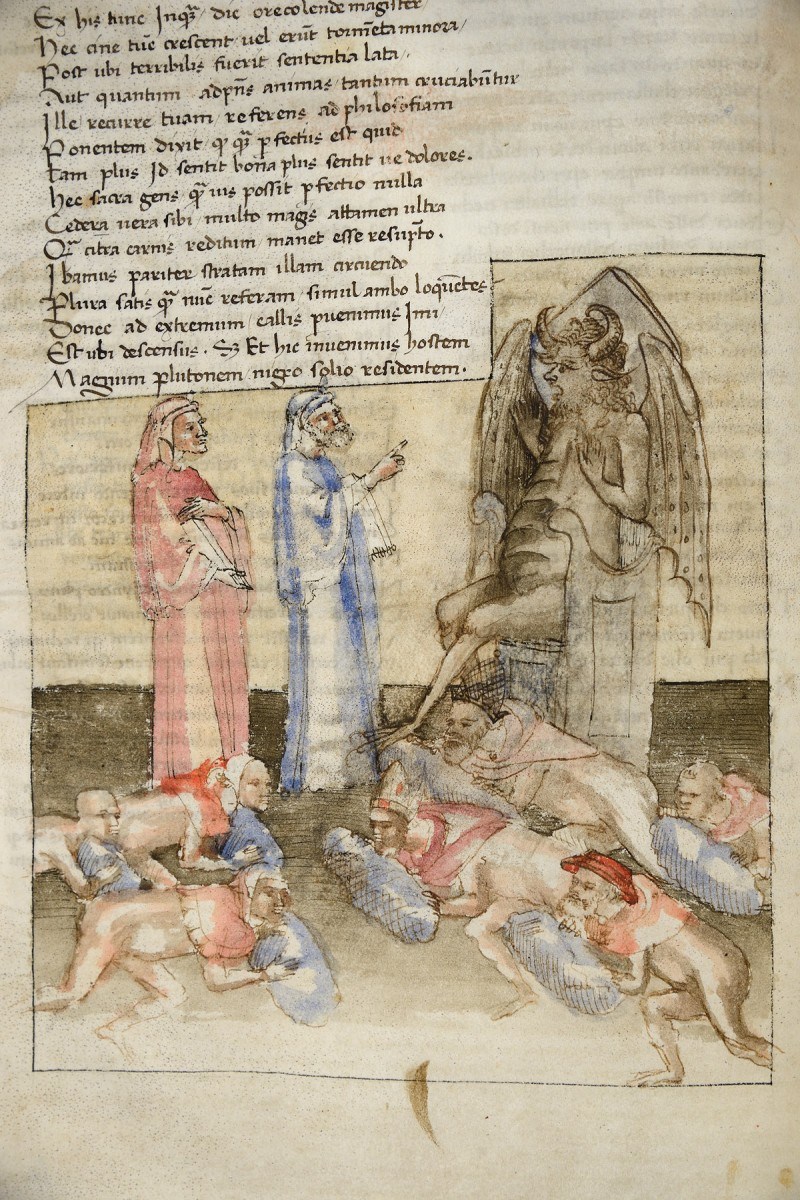 Ex his tunc Inqȝ dic o recolende magister
Hec cine tūc crescent uel erūt tormēta minora
Post ubi terribilis fuerit sententia lata.
Aut quantum adpn̄s animas tantum cruciabūtur
Ille recurre tuam referens ad philosofiam
Ponentem dixit qꝫ qȝ pfectus est quid
tam plus Id sentit bona plus sentit ue dolores.
Hec sacra gens qȝ uis possit pfectio nulla
Cedera uera sibi multo magis attamen ultra
citra carnis reditum manet esse resūpto.
Ibamus pariter stratam illam circuendo
Plura satis qȝ nūc referam simul ambo loquētes
Donec ad extremum callis puenimus Imi
Est ubi descensus. Et hic inuenimus hostem
Magnum plutonem nigro solio residentem.